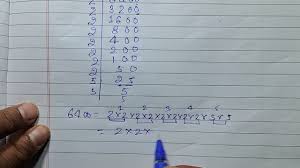 2 3200
2 1600
2 800
2 400
2 200
2 100
2 50
5 25
5
6400 = 2×2×2×2×2×2×2×2×5×5
= 2×2×